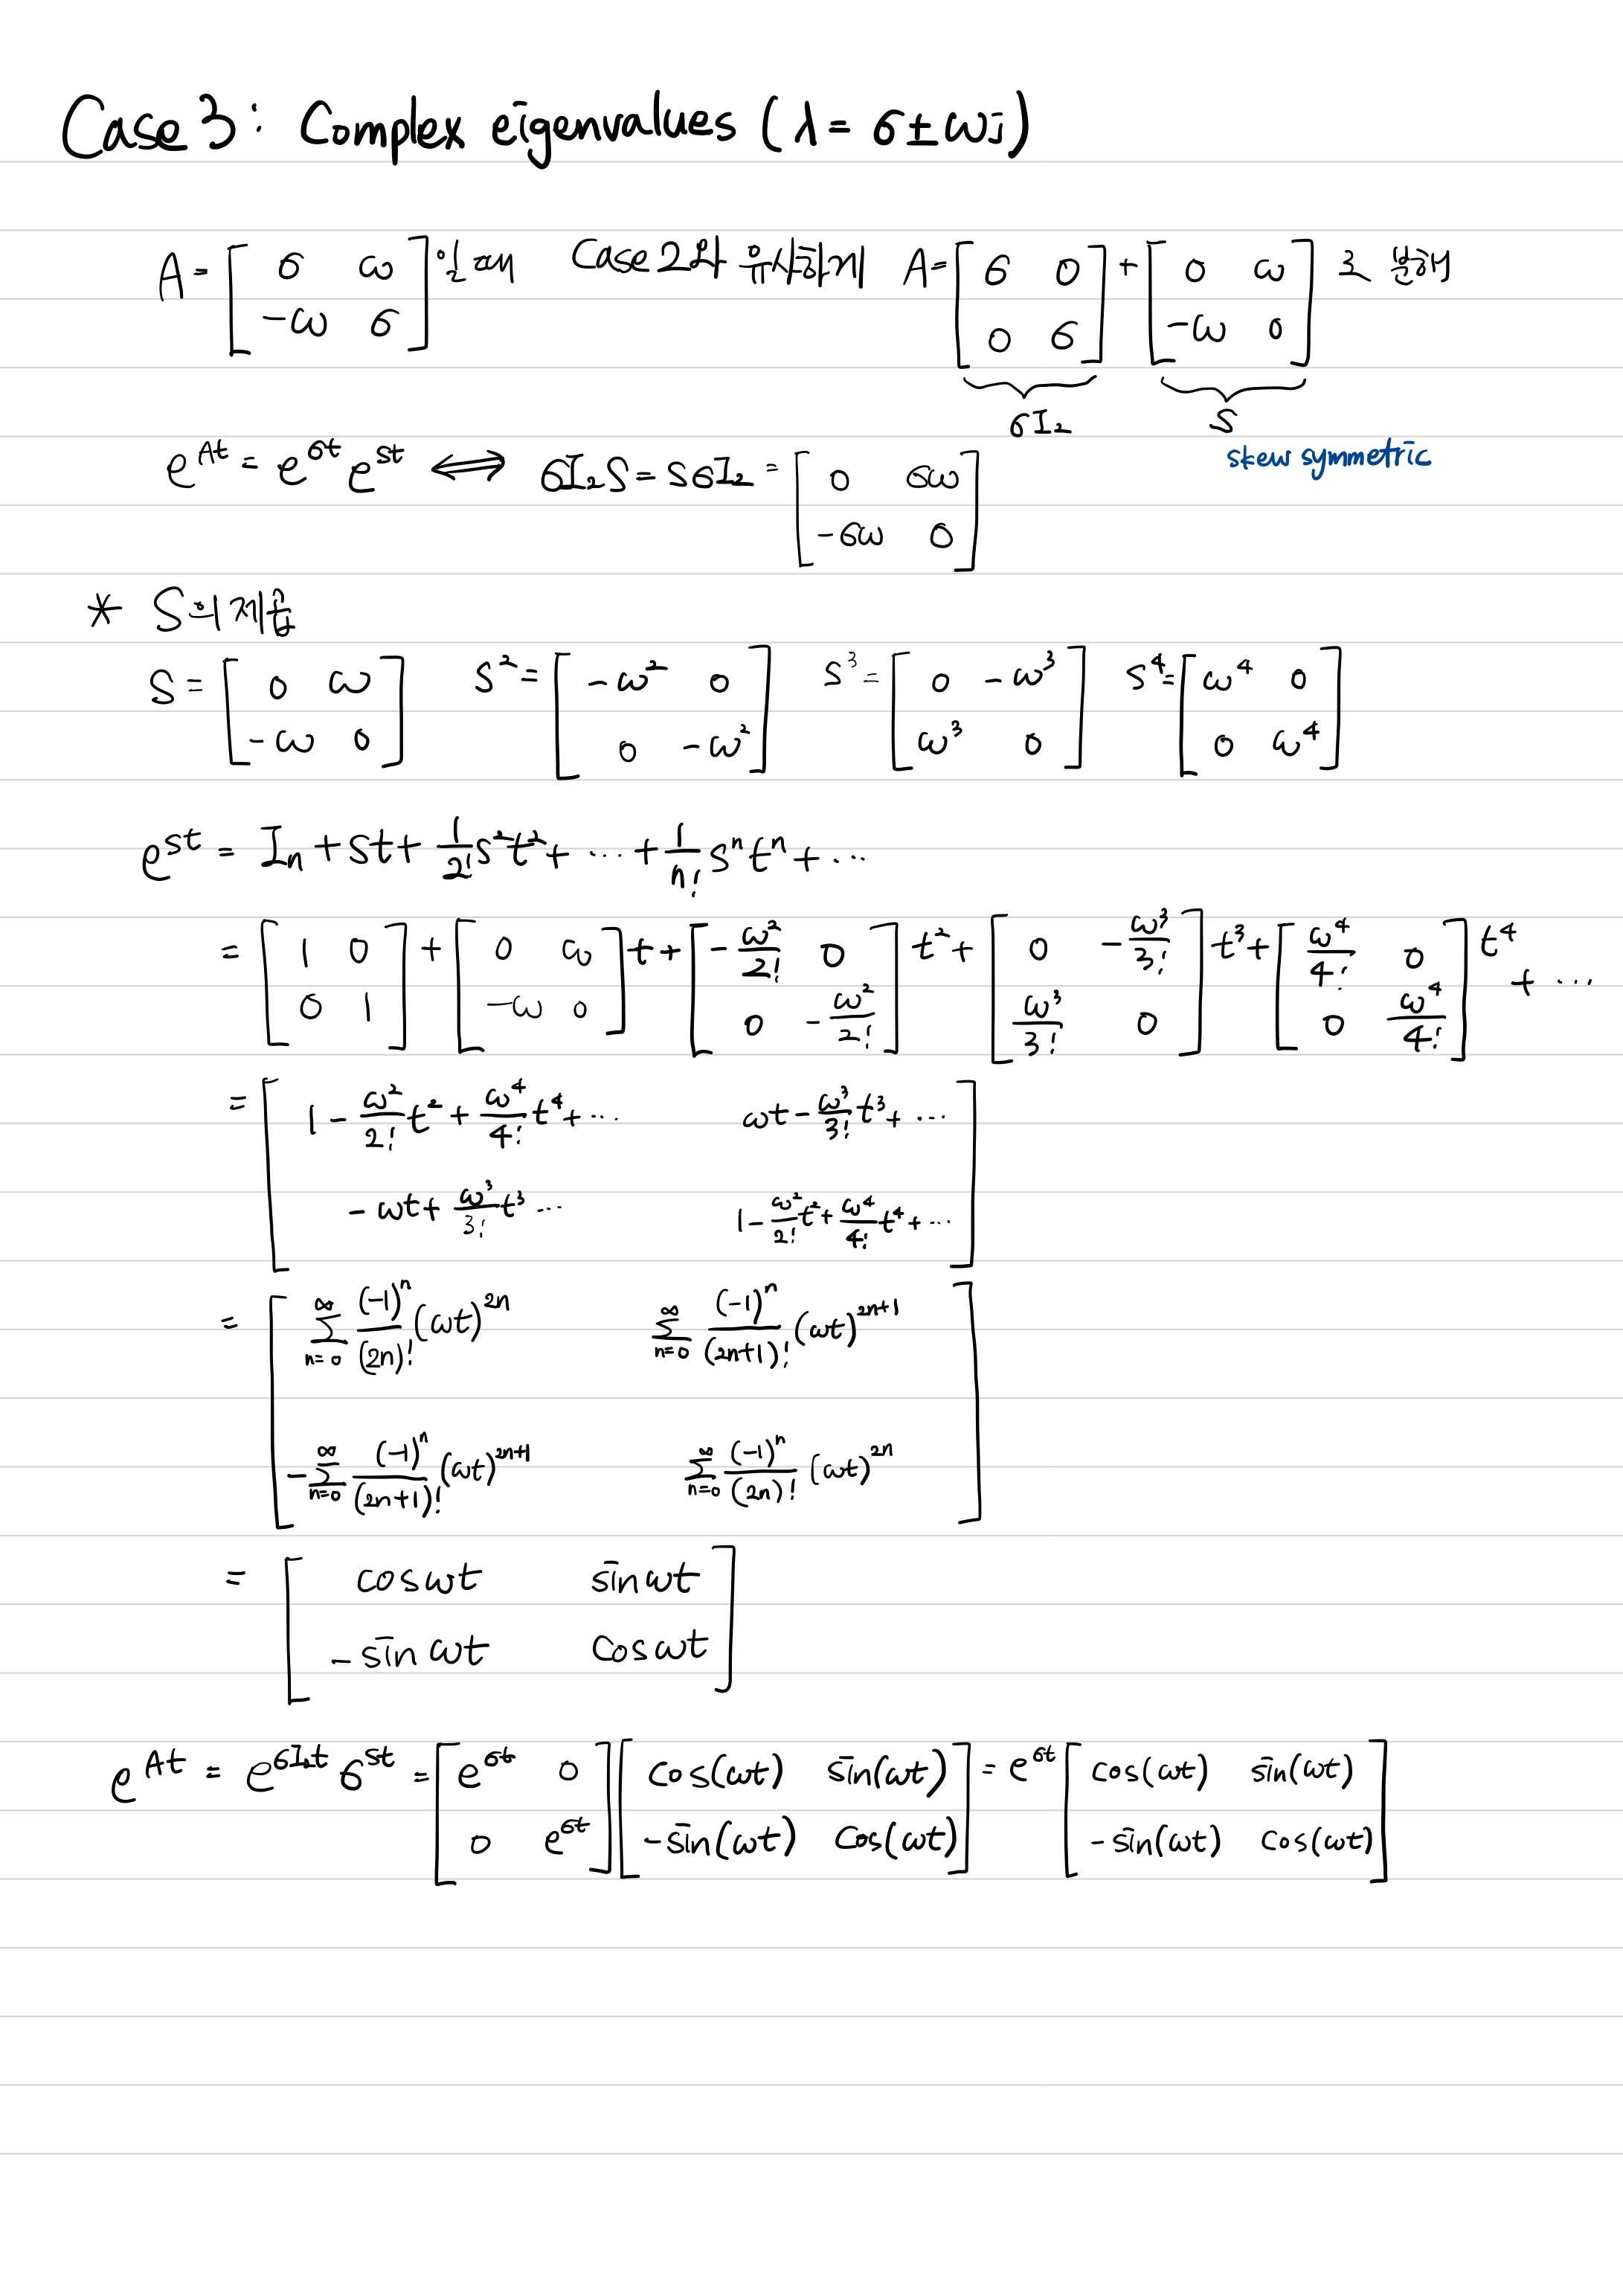 Case 3: Complex eigenvalues (λ = σ ± ωi)
A = [ σ ω ; -ω σ ] 일 때 Case 2와 유사하게 A = [ σ 0 ; 0 σ ] + [ 0 ω ; -ω 0 ] 로 분해
σI₂ S
skew symmetric
e^{At} = e^{σt} e^{St} ⟺ σI₂S = SσI₂ = [ 0 σω ; -σω 0 ]
* S의 제곱
S = [ 0 ω ; -ω 0 ] S² = [ -ω² 0 ; 0 -ω² ] S³ = [ 0 -ω³ ; ω³ 0 ] S⁴ = [ ω⁴ 0 ; 0 ω⁴ ]
e^{St} = I_n + St + 1/2! S²t² + ⋯ + 1/n! Sⁿtⁿ + ⋯
= [ 1 0 ; 0 1 ] + [ 0 ω ; -ω 0 ] t + [ -ω²/2! 0 ; 0 -ω²/2! ] t² + [ 0 -ω³/3! ; ω³/3! 0 ] t³ + [ ω⁴/4! 0 ; 0 ω⁴/4! ] t⁴ + ⋯
= [ 1 - ω²/2! t² + ω⁴/4! t⁴ + ⋯ ωt - ω³/3! t³ + ⋯ ; -ωt + ω³/3! t³ ⋯ 1 - ω²/2! t² + ω⁴/4! t⁴ + ⋯ ]
= [ ∑_{n=0}^{∞} (-1)^n/(2n)! (ωt)^{2n} ∑_{n=0}^{∞} (-1)^n/(2n+1)! (ωt)^{2n+1} ; -∑_{n=0}^{∞} (-1)^n/(2n+1)! (ωt)^{2n+1} ∑_{n=0}^{∞} (-1)^n/(2n)! (ωt)^{2n} ]
= [ cosωt sinωt ; -sinωt cosωt ]
e^{At} = e^{σI₂t} σ^{St} = [ e^{σt} 0 ; 0 e^{σt} ] [ cos(ωt) sin(ωt) ; -sin(ωt) cos(ωt) ] = e^{σt} [ cos(ωt) sin(ωt) ; -sin(ωt) cos(ωt) ]